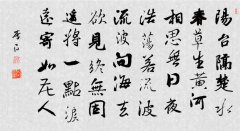 陽台隔楚水
春草生黄河
相思無日夜
浩蕩若流波
流波向海去
欲見終無因
遥將一點淚
遠寄如花人